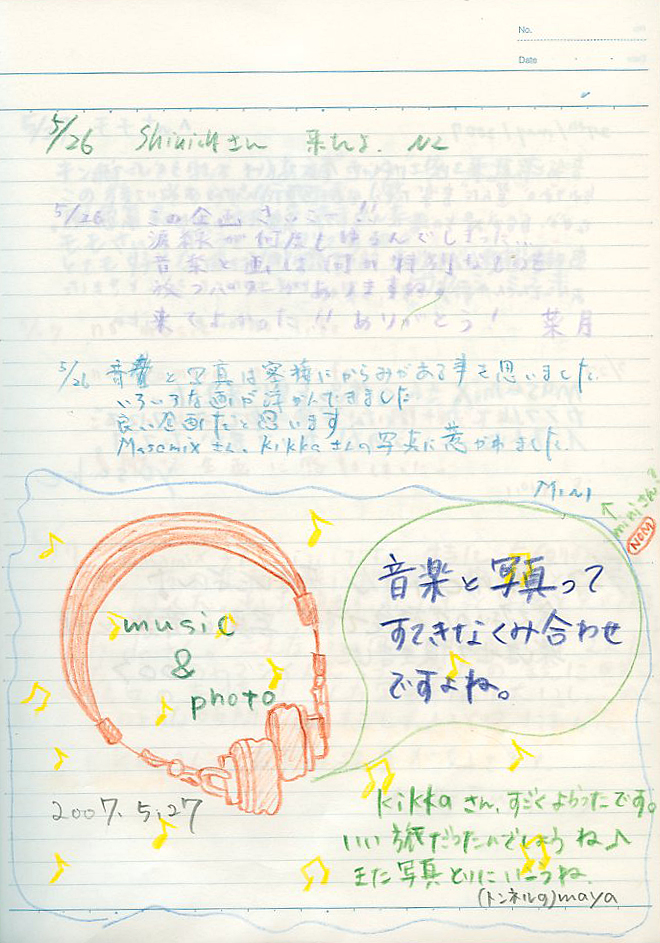 No.
Date
5/26 Shinichiさん 来たよ.
5/26 この企画 さいこー!!
涙線が何度もゆるんでしまった...
音楽と画は何か特別なものを
放つパワーがありますね。
来てよかった!! ありがとう! 葉月
5/26 音楽と写真は密接にからみがある事を思いました.
いろいろな画が浮かんできました
良い企画だと思います
Masamixさん、kikkaさんの写真に惹かれました.
MINI
miniさん?
NOM
music
&
photo
音楽と写真って
すてきなくみ合わせ
ですよね。
2007.5.27
kikkaさん、すごくよかったです。
いい旅だったんでしょうね♪
また写真とりにいこうね.
(トンネルの)maya